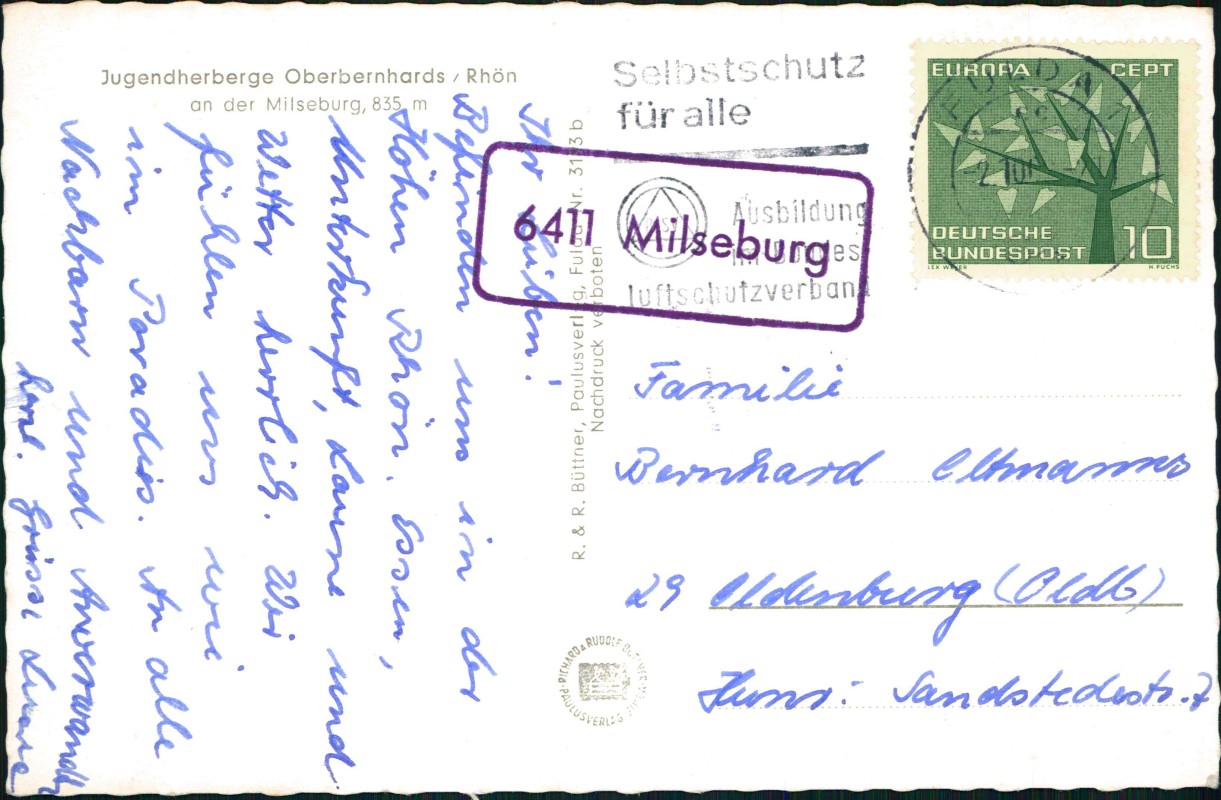 Jugendherberge Oberbernhards / Rhön
an der Milseburg, 835 m
Ihr Lieben!
Befinden uns in der
Höhen Rhön. Essen,
Unterkunft, Laune und
Wetter herrlich. Wir
fühlen uns wie
im Paradies. An alle
Nachbarn und Anverwandte
herzl. Grüsse
R. & R. Büttner, Paulusverlag, Fulda Nr. 3113 b
Nachdruck verboten
Selbstschutz
für alle
Ausbildung
im Bundes
luftschutzverband
6411 Milseburg
FULDA
EUROPA CEPT
DEUTSCHE
BUNDESPOST 10
LEX WEYER H. FUCHS
Familie
Bernhard Oltmanns
29 Oldenburg (Oldb)
Sandstedestr. 7
RICHARD & RUDOLF BÜTTNER
PAULUSVERLAG FULDA